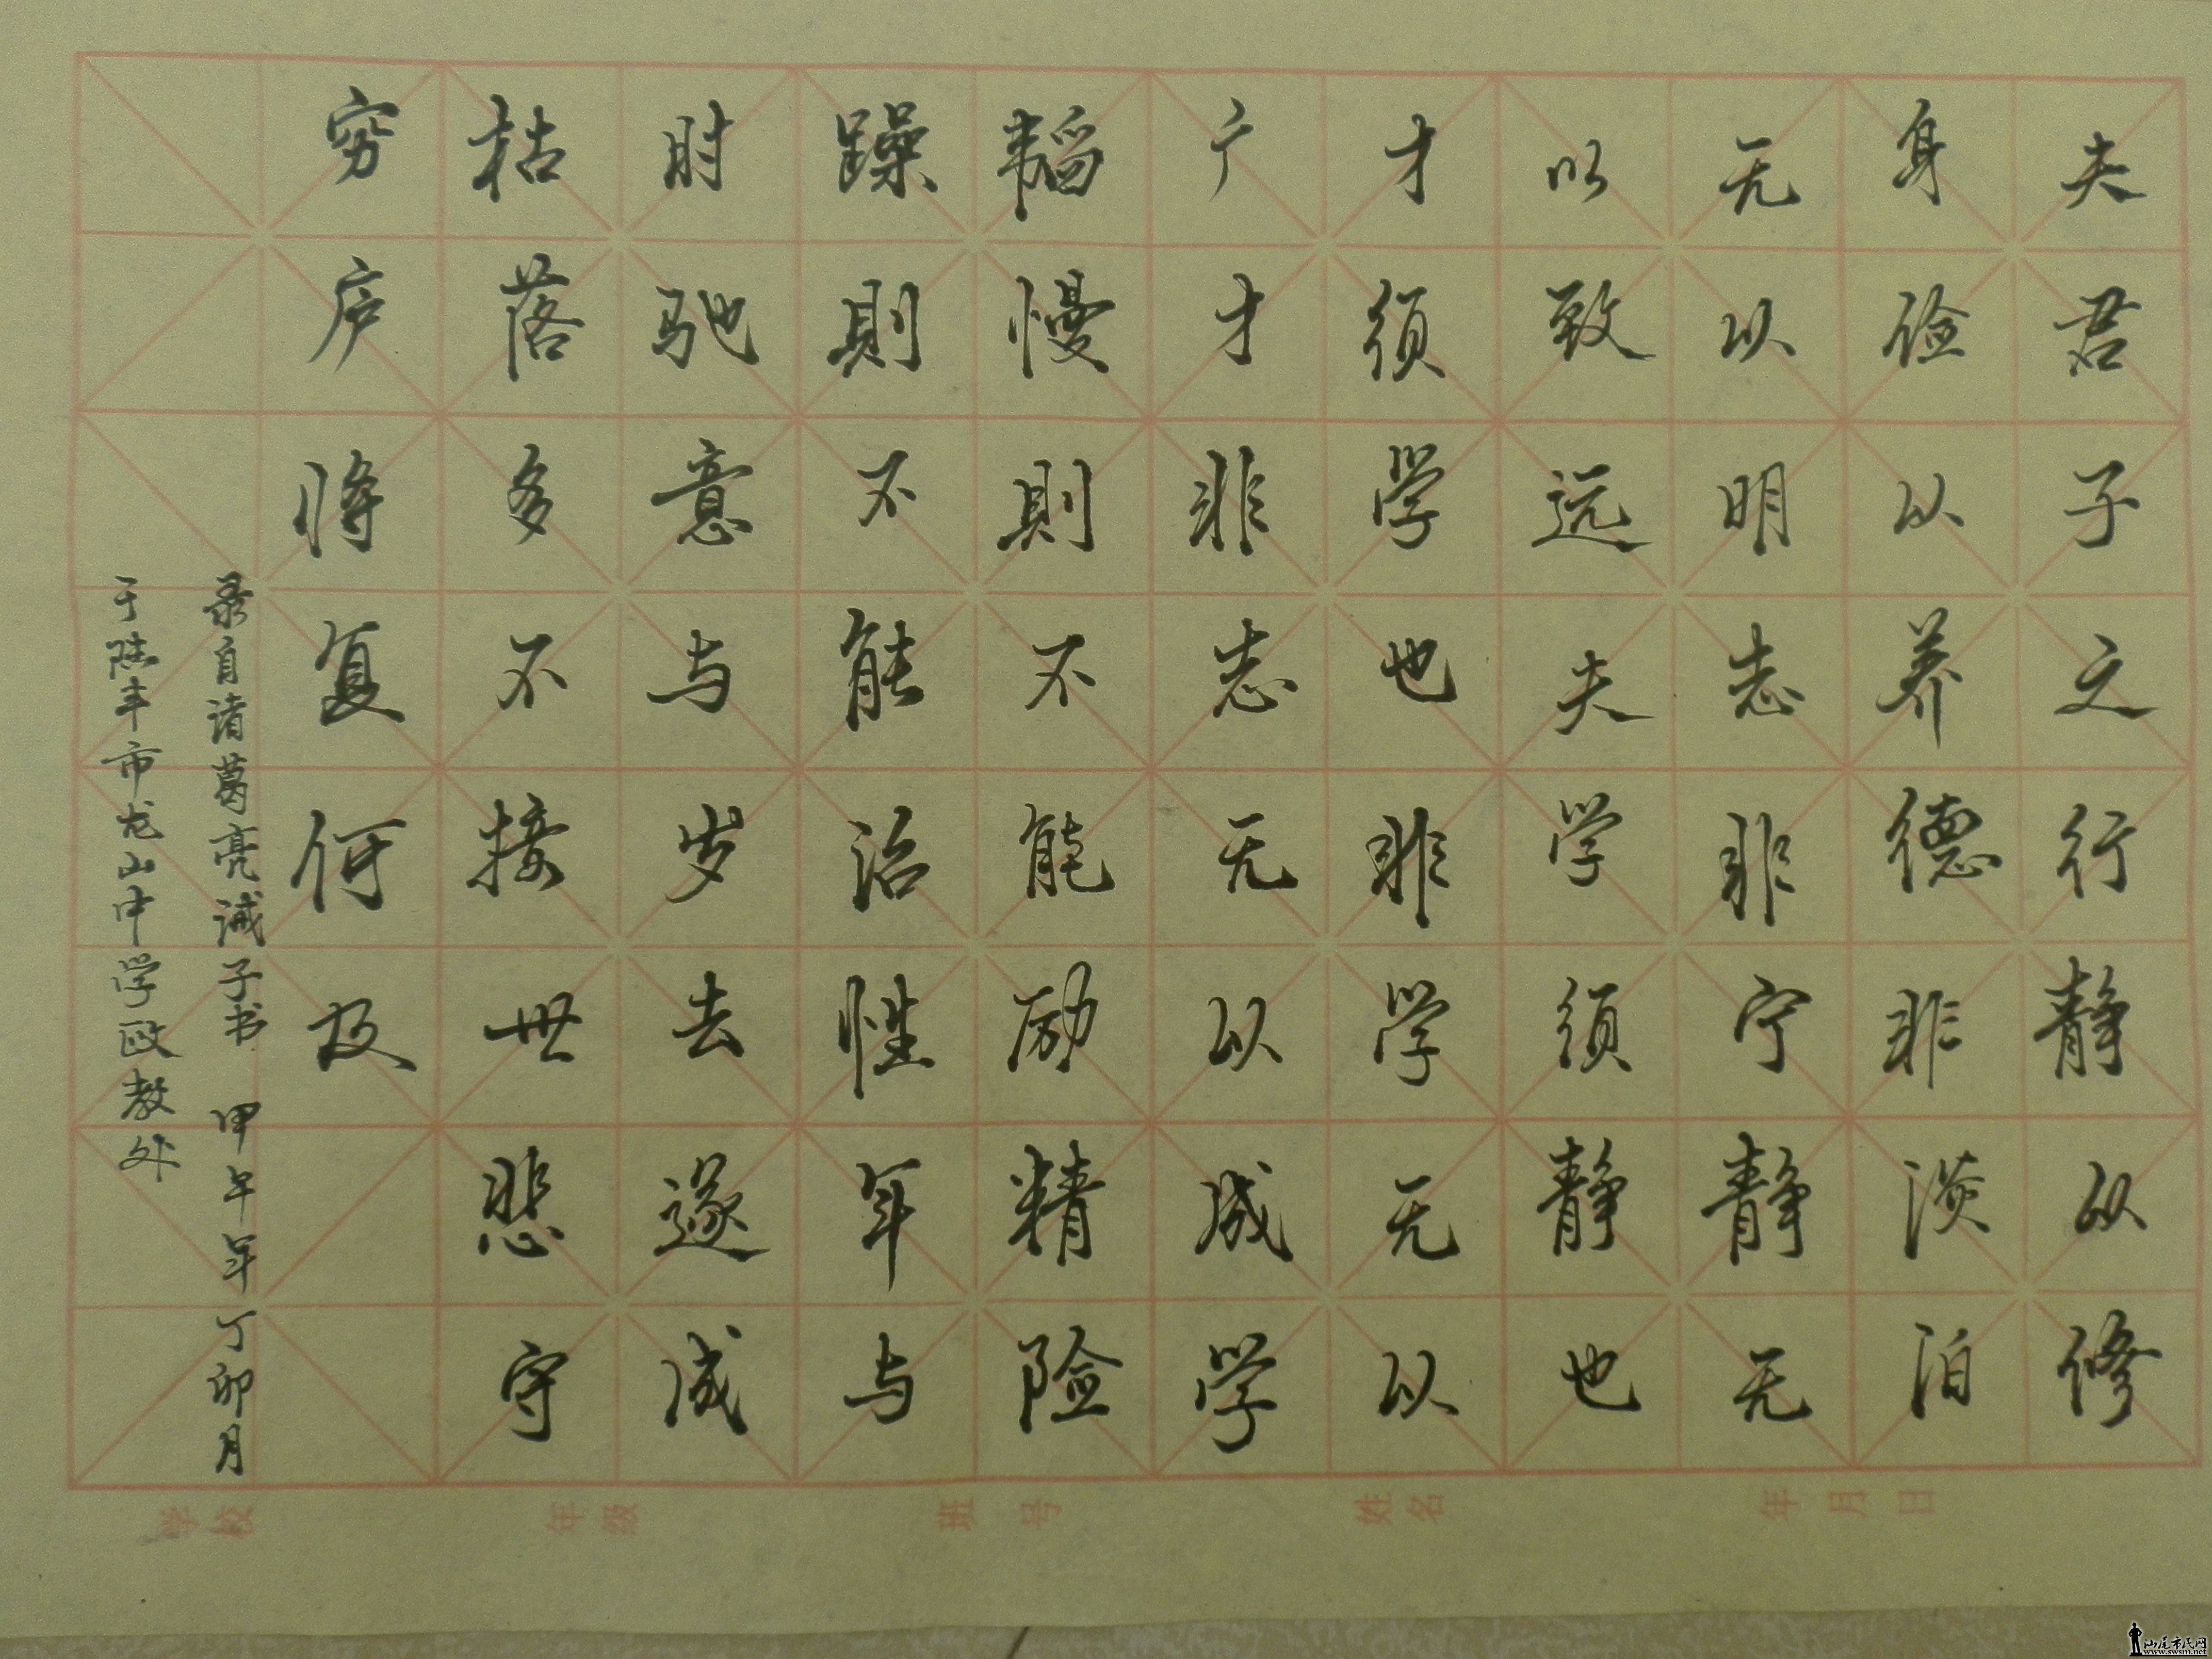 夫君子之行静以修
身俭以养德非淡泊
无以明志非宁静无
以致远夫学须静也
才须学也非学无以
广才非志无以成学
韬慢則不能励精险
躁則不能治性年与
时驰意与岁去遂成
枯落多不接世悲守
穷庐将复何及
录自诸葛亮诫子书 甲午年丁卯月
于陆丰市龙山中学政教处
学校 年级 班号 姓名 年月日
汕尾市民网
www.swsm.net